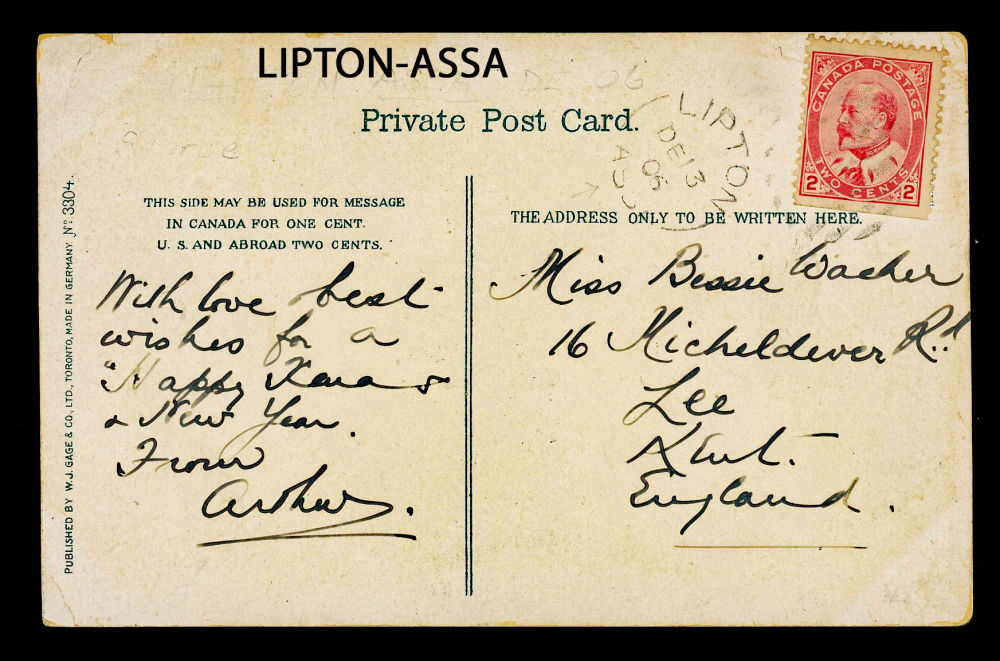 LIPTON-ASSA
Private Post Card.
LIPTON
DE 13
06
ASS
CANADA POSTAGE
2 TWO CENTS 2
THIS SIDE MAY BE USED FOR MESSAGE
IN CANADA FOR ONE CENT.
U. S. AND ABROAD TWO CENTS.
THE ADDRESS ONLY TO BE WRITTEN HERE.
With love best
wishes for a
"Happy Xmas
& New Year.
From
Arthur.
Miss Bessie Wacher
16 Micheldever Rd
Lee
Kent.
England.
PUBLISHED BY W.J. GAGE & CO., LTD., TORONTO, MADE IN GERMANY Nº 3304.